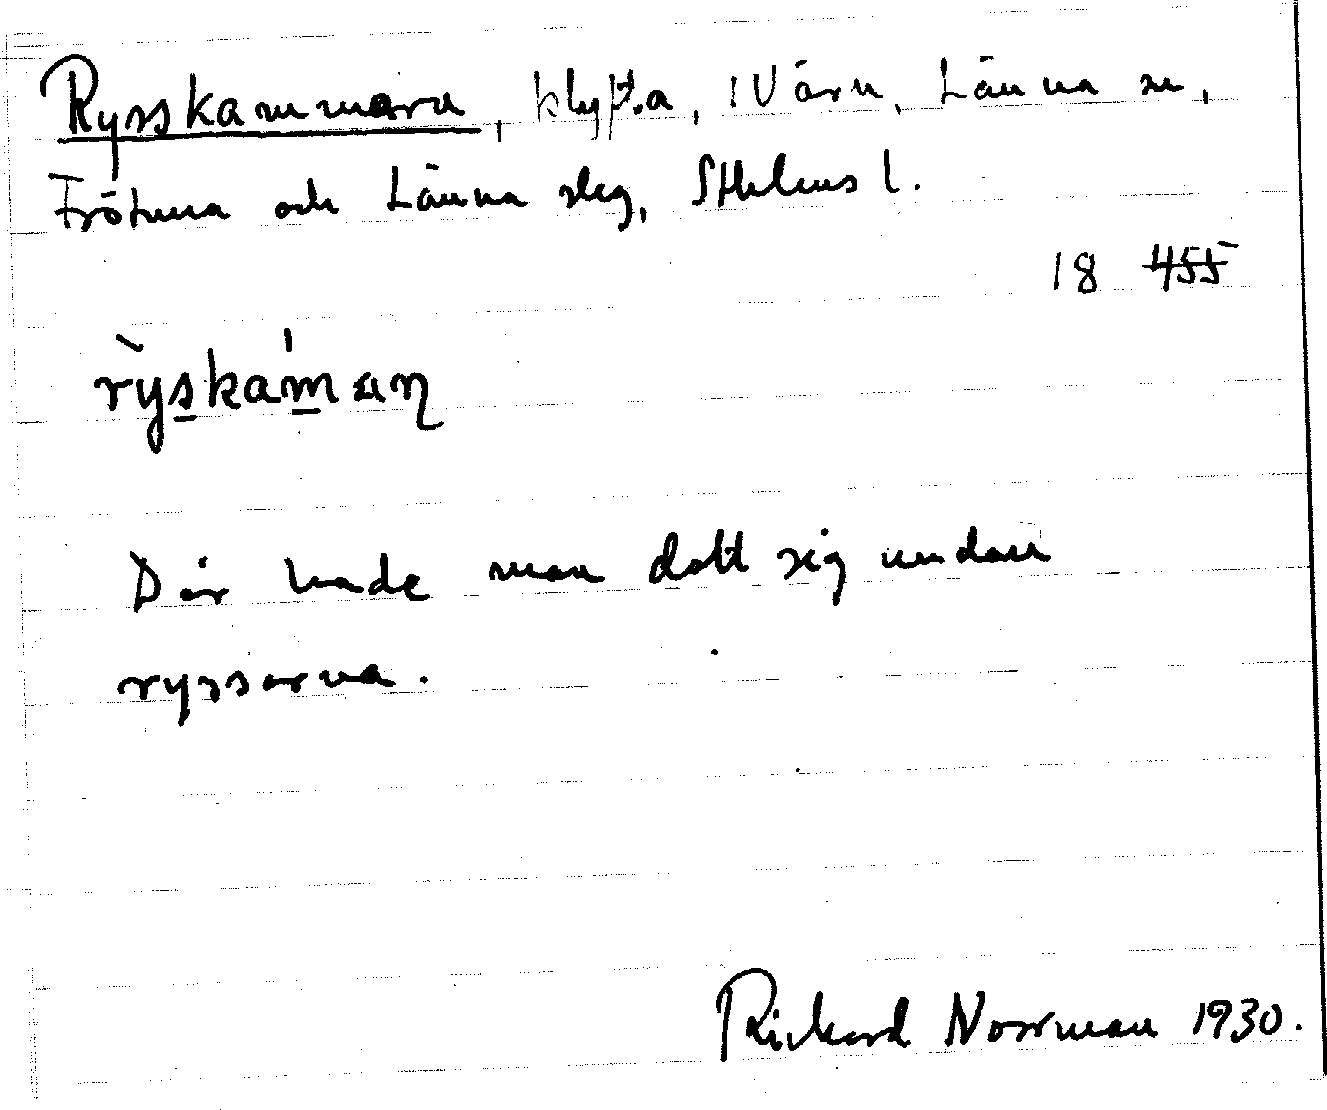 Rysskammarn, klyfta, IVärn, Länna sn,
Frötuna och Länna slg, Sthlms l.
18 455
rỳskámaɳ
Där hade man dolt sig undan
ryssarna.
Rickard Norrman 1930.